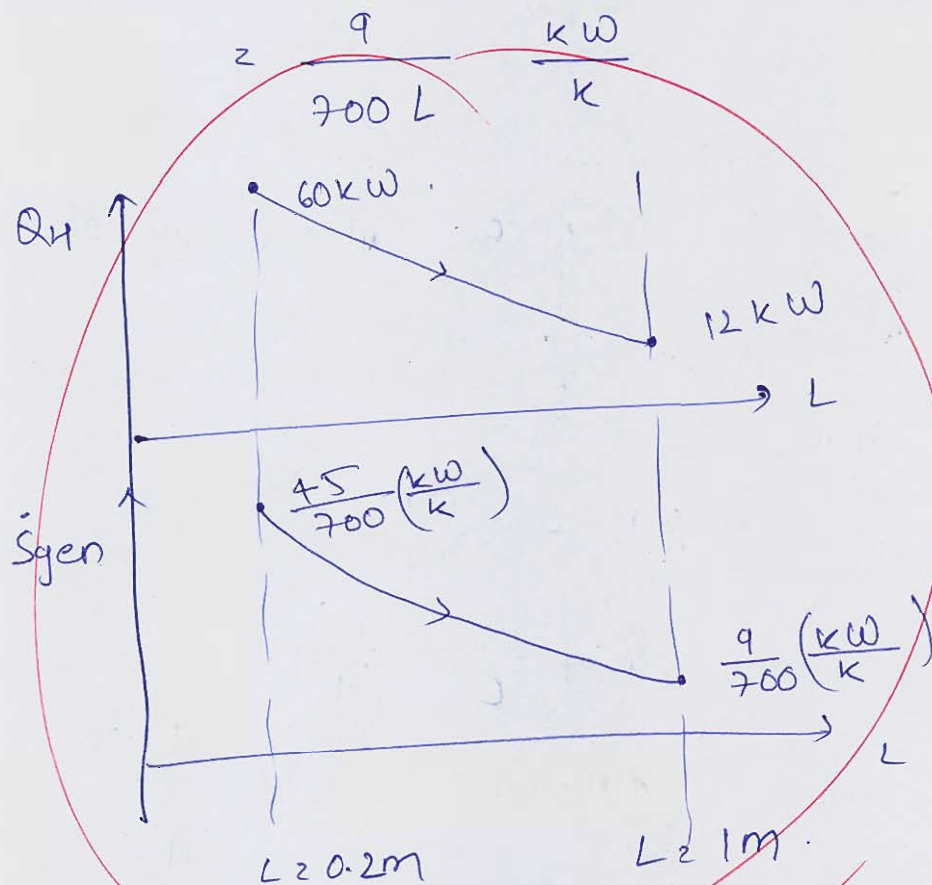 = 9/(700 L) kW/K
Q_H
60 kW.
12 kW
L
Ṡgen
45/700 (kW/K)
9/700 (kW/K)
L
L = 0.2m
L = 1m.